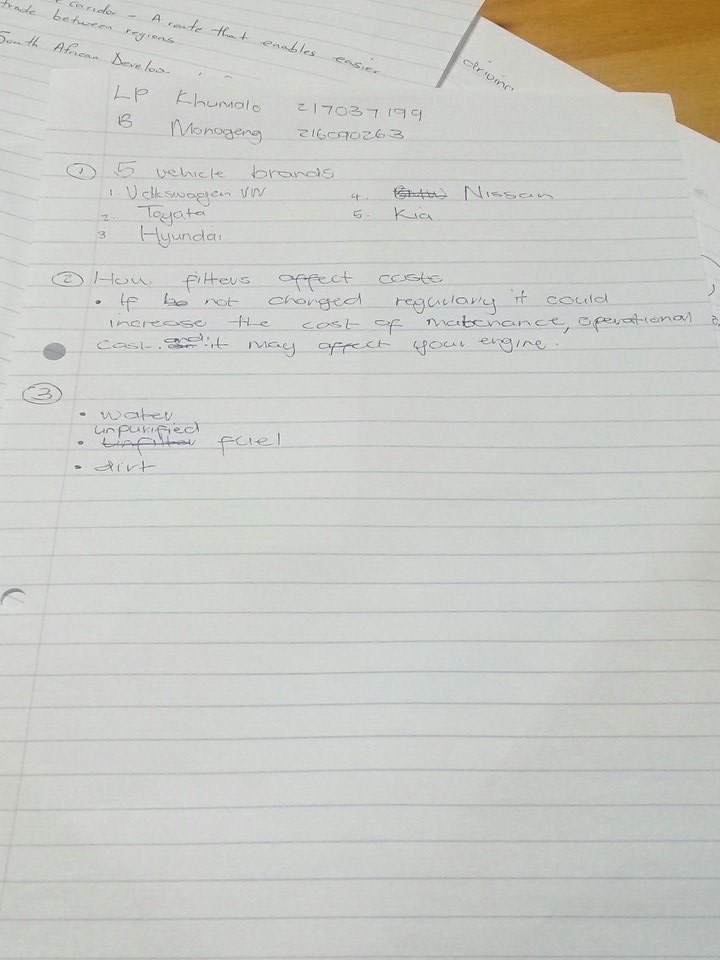 corridor - A route that enables easier
trade between regions
South African Develop
driving
LP Khumalo 217037199
B Monageng 216090263
① 5 vehicle brands
1. Volkswagen VW
2. Toyata
3 Hyundai
4. Nissan
5. Kia
② How filters affect costs
• If not changed regularly it could
increase the cost of matenance, operational
cost. and it may affect your engine.
③
• water
unpurified
• Unfilter fuel
• dirt